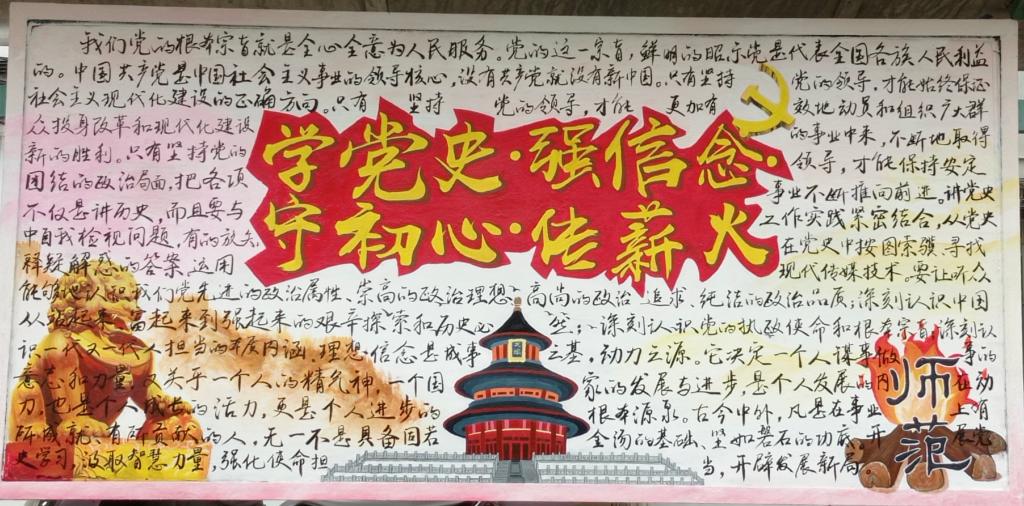 我们党的根本宗旨就是全心全意为人民服务。党的这一宗旨,鲜明的昭示党是代表全国各族人民利益
的。中国共产党是中国社会主义事业的领导核心,没有共产党就没有新中国。只有坚持 党的领导,才能始终保证
社会主义现代化建设的正确方向。只有 坚持 党的领导,才能 更加有 效地动员和组织广大群
众投身改革和现代化建设 的事业中来,不断地取得
新的胜利。只有坚持党的 领导,才能保持安定
团结的政治局面,把各项 事业不断推向前进。讲党史
不仅是讲历史,而且要与 工作实践紧密结合,从党史
中自我检视问题,有的放矢 在党史中按图索骥、寻找
释疑解惑的答案,运用 现代传媒技术。要让听众
学党史·强信念·
守初心·传薪火
能够地认识我们党先进的政治属性、崇高的政治理想、高尚的政治 追求、纯洁的政治品质;深刻认识中国
从站起来、富起来到强起来的艰辛探索和历史必 然;深刻认识党的执政使命和根本宗旨,深刻认
识一代又一代人担当的本质内涵,理想信念是成事 之基,动力之源。它决定一个人谋事做 事的
意志和力量,又关乎一个人的精气神,一个国 家的发展与进步,是个人发展的内 在动
力,也是个人成长的活力,更是个人进步的 根本源泉。古今中外,凡是在事业 上有
所成就、有所贡献的人,无一不是具备固若 金汤的基础、坚如磐石的功底。开 展党
史学习,汲取智慧力量,强化使命担 当,开辟发展新局
师
范